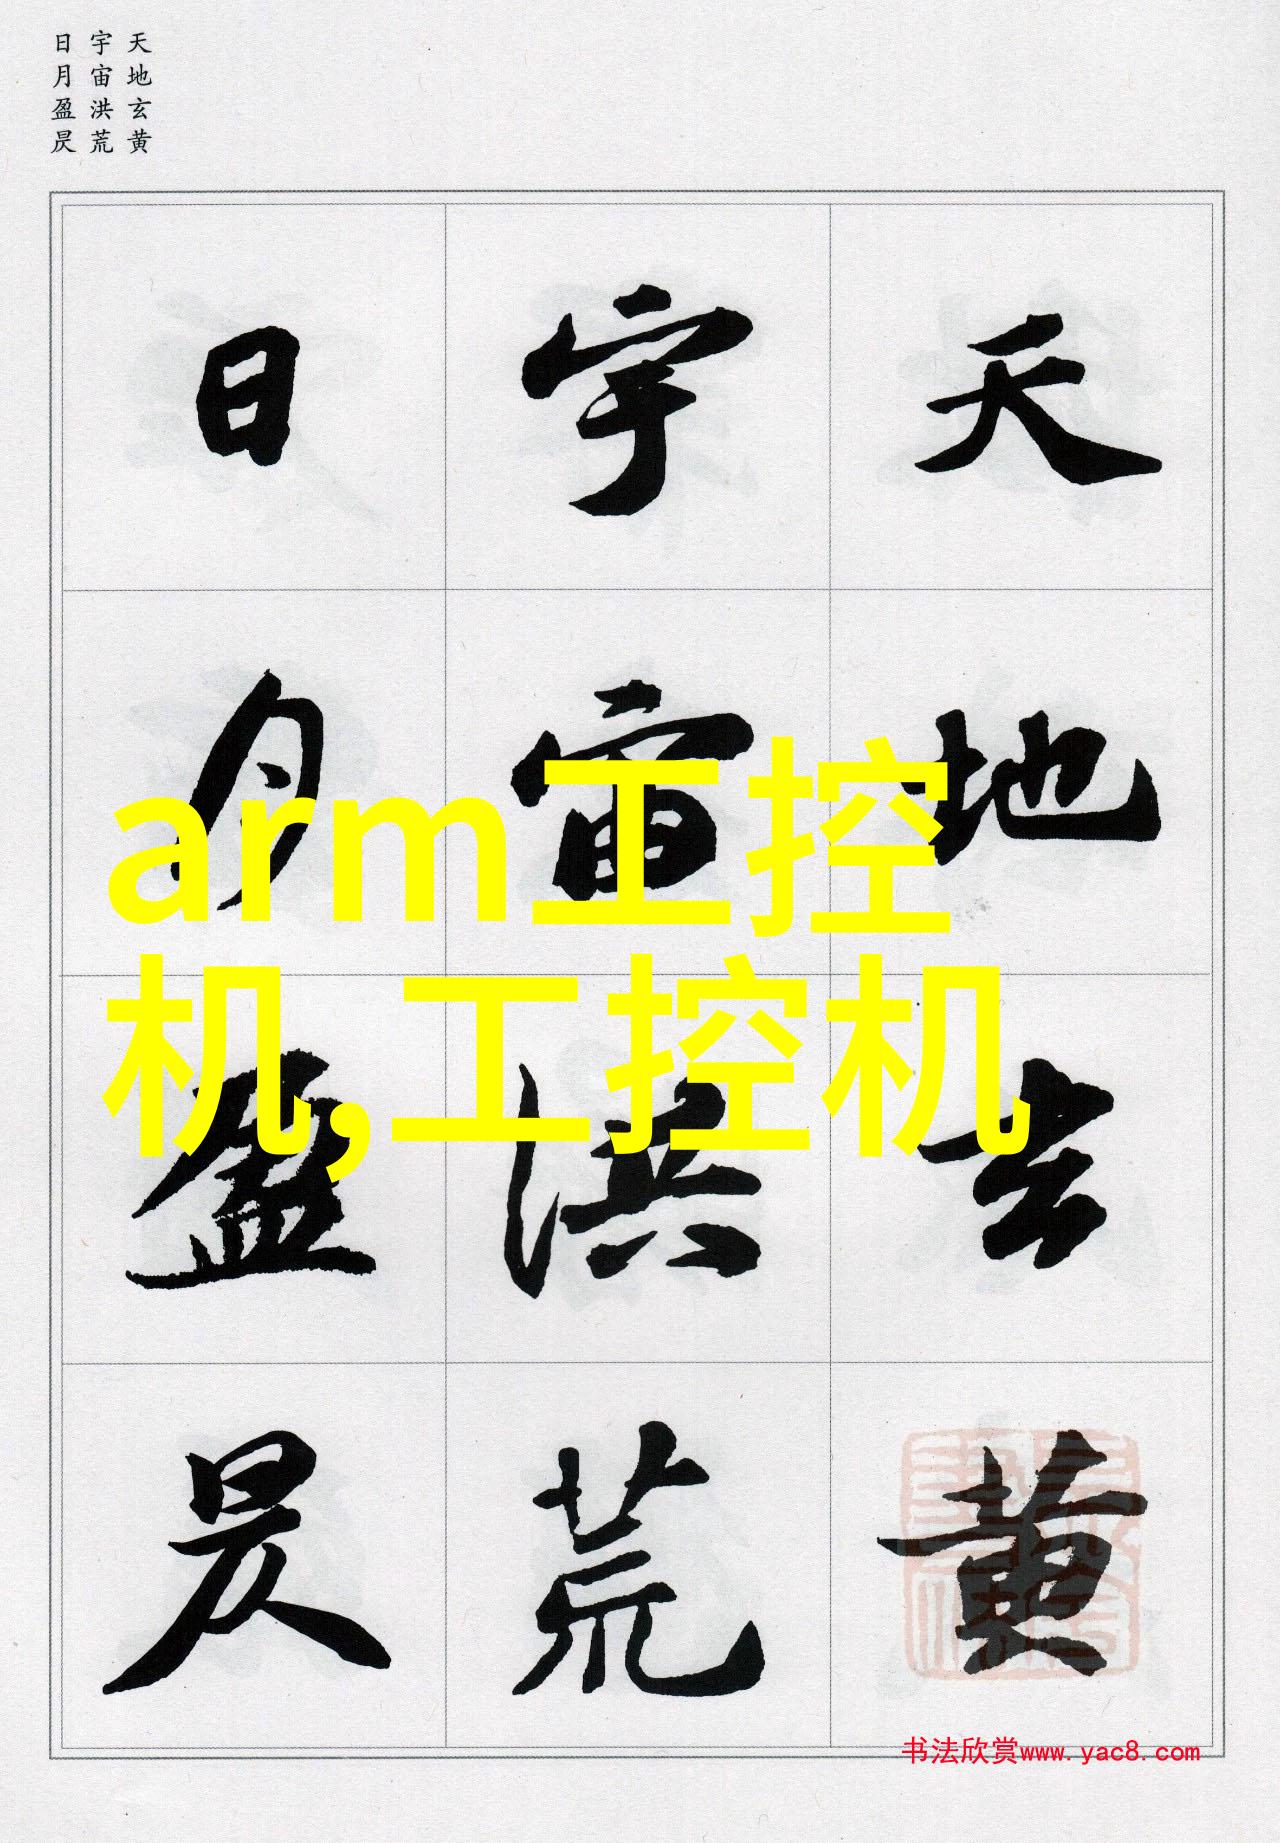 天地玄黄
宇宙洪荒
日月盈昃
天地玄黄
宇宙洪荒
日月盈昃
arm工控
机,工控机
书法欣赏www.yac8.com